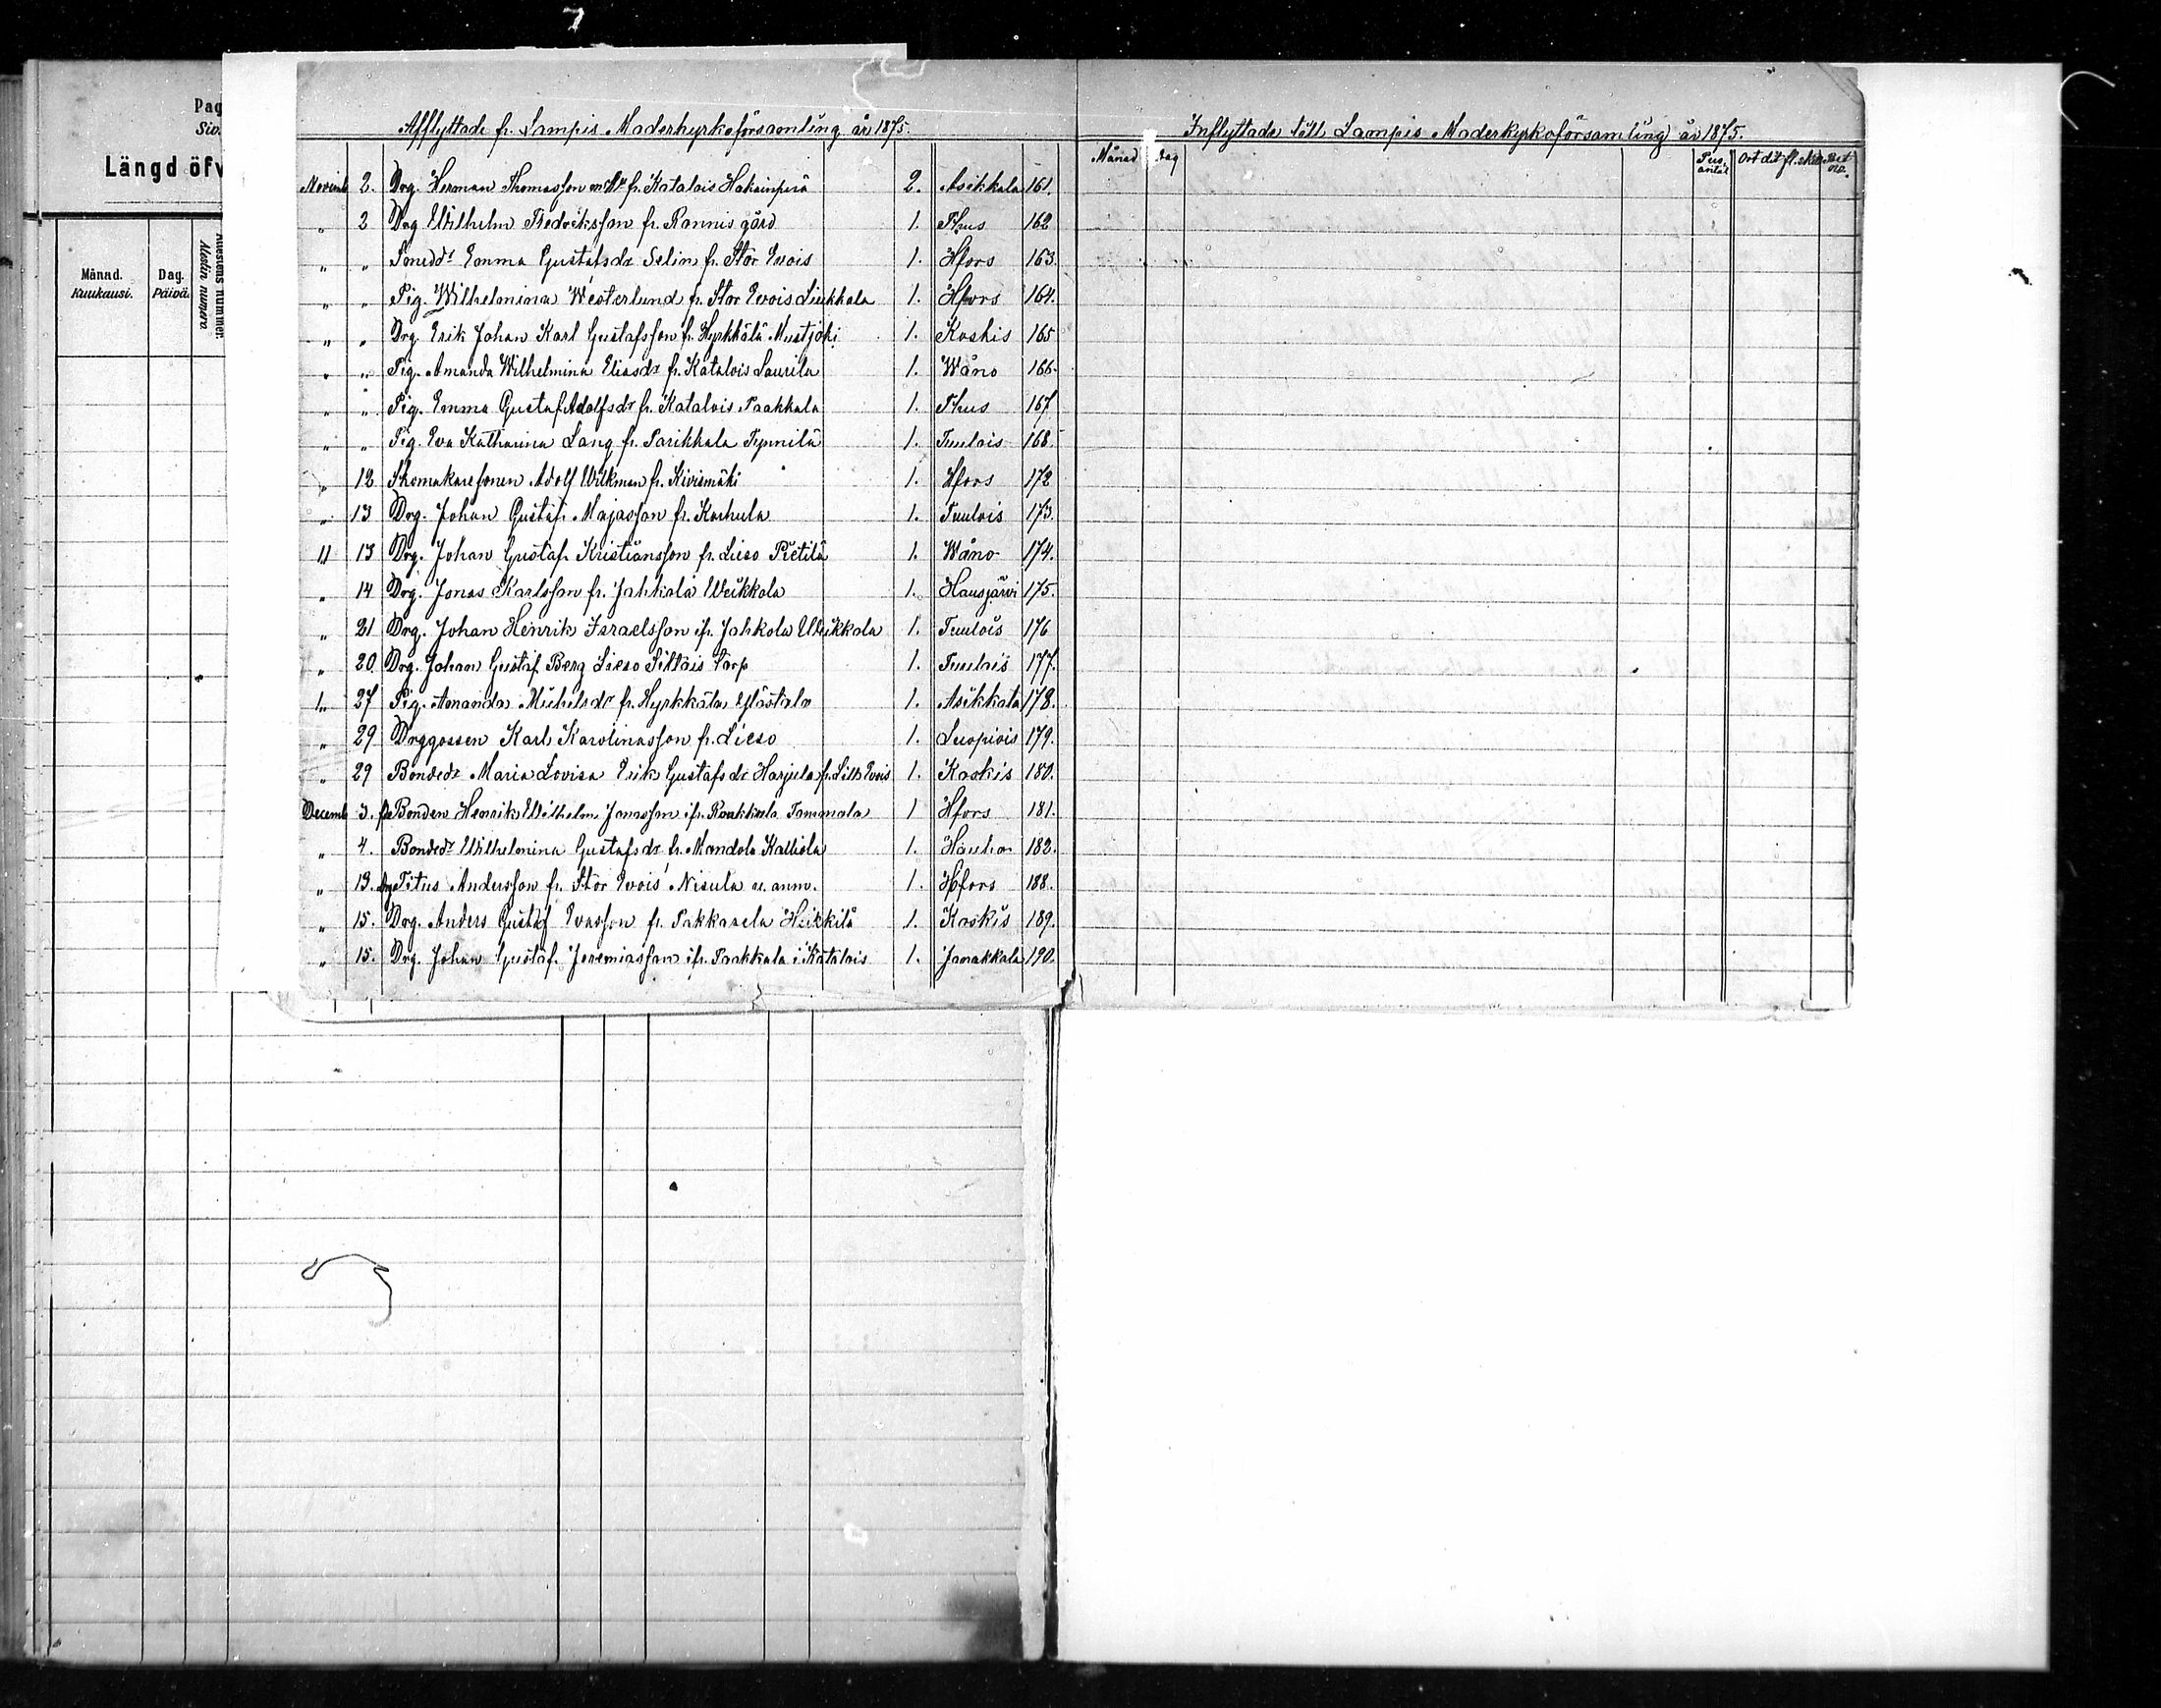 7
Pag
Siv.
Längd öfv
Månad.
Kuukausi.
Dag.
Päivä.
Attestens nummer.
Alestin numero.
Afflyttade fr. Lampis Moderkyrkoförsamling år 1875.
Novemb 2. Drg. Herman Thomasson m h u fr. Katalois Hakainperä 2. Asikkala 161.
" 2 Drg Wilhelm Fredriksson fr. Ronnis gård 1. Thus 162
" " Sonedr Emma Gustafsdr Selin fr. Stor Evois 1. Hfors 163.
" " Pig. Wilhelmina Westerlund fr. Stor Evois Liukkala 1. Hfors 164.
" " Drg. Erik Johan Karl Gustafsson fr. Hyrkkälä Mustjoki 1. Koskis 165
" " Pig. Amanda Wilhelmina Eliasdr fr. Katalois Laurila 1. Wåno 166.
" " Pig. Emma Gustaf Adolfsdr fr. Katalois Paakkala 1. Thus 167
" " Pig. Eva Katharina Lang fr. Parikkala Tynnilä 1. Tuulois 168.
" 12 Skomakaresonen Adolf Wilkman fr. Kivismäki 1. Hfors 172
" 13 Drg. Johan Gustaf Majasson fr. Karhula 1. Tuulois 173.
11 13 Drg. Johan Gustaf Kristiansson fr. Lieso Pietilä 1. Wåno 174.
" 14 Drg. Jonas Karlsson fr. Jahkola Weikkola 1. Hausjärvi 175.
" 21 Drg. Johan Henrik Israelsson ifr. Jahkola Weikkola 1. Tuulois 176
" 20. Drg. Johan Gustaf Berg Lieso Sillais torp 1. Tuulois 177.
" 27 Pig. Amanda Michelsdr fr. Hyrkkälä Ylöstalo 1. Asikkala 178.
" 29 Drggossen Karl Karolinasson fr. Lieso 1. Luopiois 179.
" 29 Bondedr Maria Lovisa Erik Gustafsdr Harjula fr. Lill Evois 1. Koskis 180.
Decemb 3. fd Bonden Henrik Wilhelm Jonasson ifr. Ronkkala Tommola 1 Hfors 181.
" 4. Bondedr Wilhelmina Gustafsdr fr. Mondola Kalliola 1. Hauho 182.
" 13. drg Titus Andersson fr. Stor Evois Nisula u. anm. 1. Hfors 188.
" 15. Drg. Anders Gustaf Evasson fr. Pakkasela Heikkilä 1. Koskis 189.
" 15. Drg. Johan Gustaf Jeremiasson ifr. Paakkala i Katalois 1. Janakkala 190.
Inflyttade till Lampis Moderkyrkoförsamling år 1875.
Månad Dag Pers. antal Ort dit fl. sker Bet No.